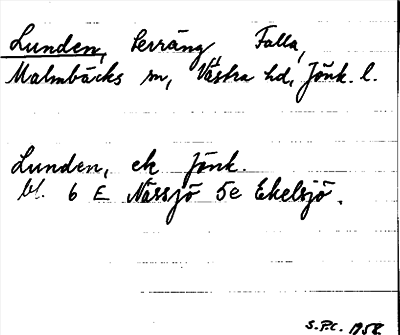 Lunden, terräng Falla,
Malmbäcks sn, Västra hd, Jönk. l.
Lunden, ek Jönk.
bl. 6 E Nässjö 5e Ekelsjö.
S.P.C. 1958